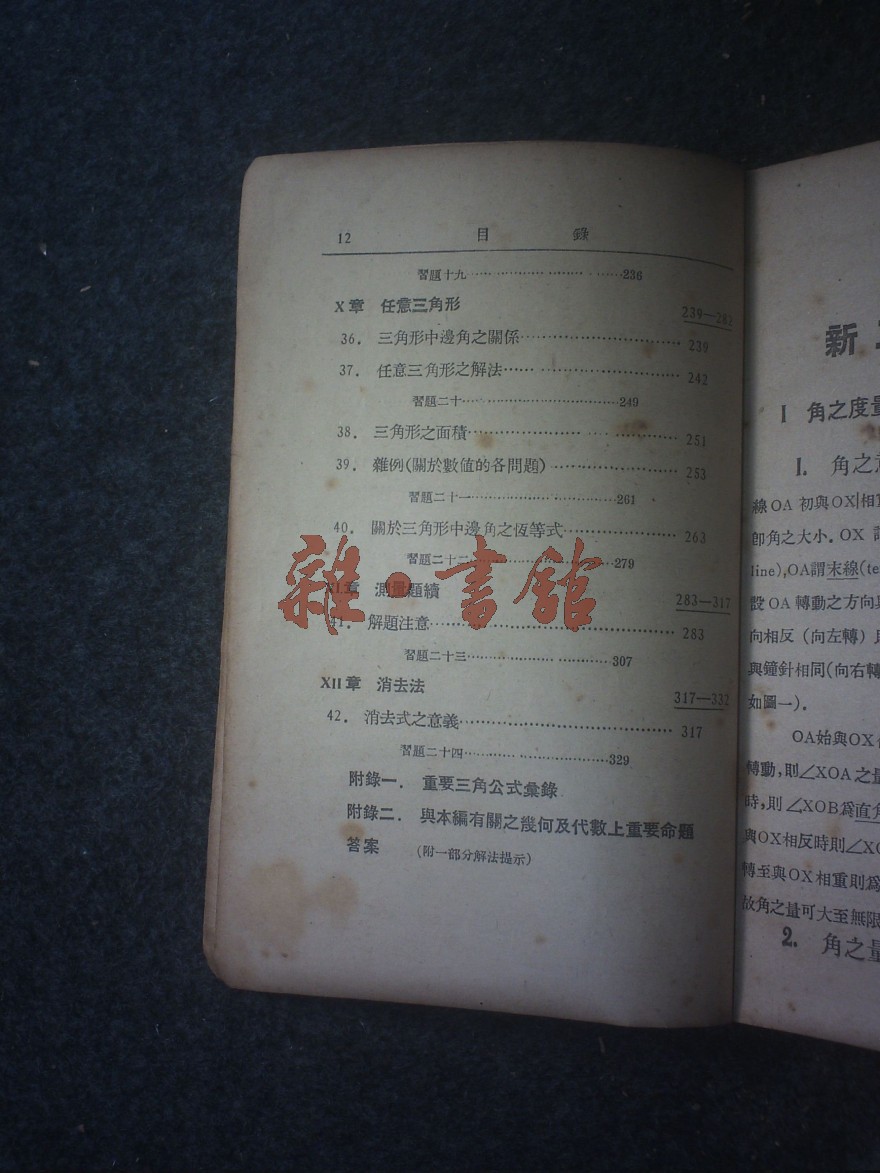 12 目 錄
習題十九 236
X 章 任意三角形 239—282
36. 三角形中邊角之關係 239
37. 任意三角形之解法 242
習題二十 249
38. 三角形之面積 251
39. 雜例(關於數值的各問題) 253
習題二十一 261
40. 關於三角形中邊角之恆等式 263
習題二十二 279
XI 章 測量題續 283—317
41. 解題注意 283
習題二十三 307
XII 章 消去法 317—332
42. 消去式之意義 317
習題二十四 329
附錄一. 重要三角公式彙錄
附錄二. 與本編有關之幾何及代數上重要命題
答案 (附一部分解法提示)
雜·書館
新
I 角之度量
1. 角之意
線 OA 初與OX相重
卽角之大小. OX 謂
line),OA謂末線(te
設 OA 轉動之方向與
向相反 (向左轉)
與鐘針相同(向右轉
如圖一).
OA始與OX
轉動,則∠XOA之量
時,則∠XOB爲直角
與OX相反時則∠XO
轉至與OX相重則爲
故角之量可大至無限
2. 角之量